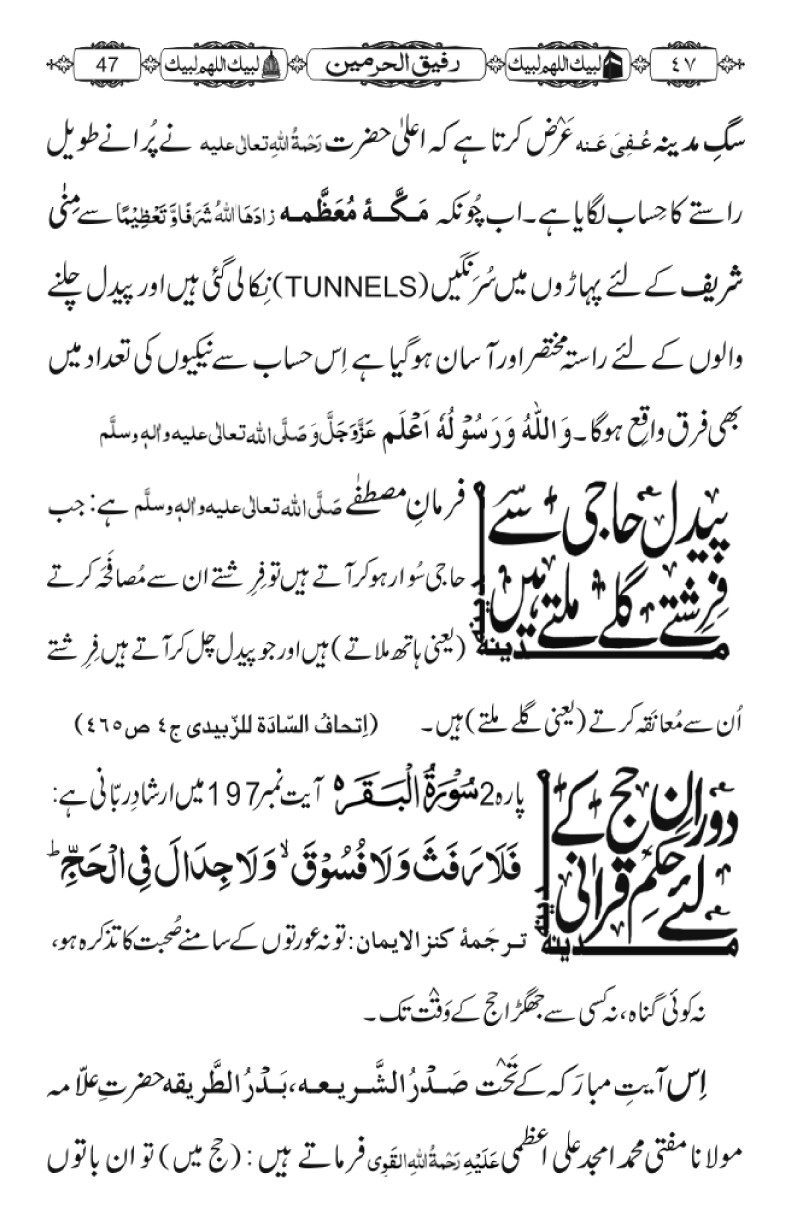 ٤٧ لبیك اللهم لبیك رفیق الحرمین لبیك اللهم لبیك 47
سگِ مدینہ عُفِیَ عَنہ عَرْض کرتا ہے کہ اعلیٰ حضرت رَحْمۃُ اللهِ تعالٰی علیه نے پُرانے طویل
راستے کا حِساب لگایا ہے۔ اب چُونکہ مَکَّۂ مُعَظَّمہ زادَھَا اللهُ شَرَفًا وَّ تَعْظِیْمًا سے مِنٰی
شریف کے لئے پہاڑوں میں سُرَنگیں (TUNNELS) نِکالی گئی ہیں اور پیدل چلنے
والوں کے لئے راستہ مختصر اور آسان ہوگیا ہے اِس حساب سے نیکیوں کی تعداد میں
بھی فرق واقع ہوگا۔ وَاللهُ وَرَسُوْلُهٗ اَعْلَم عَزَّوَجَلَّ وَصَلَّی الله تعالٰی علیه واٰلهٖ وسلَّم
پیدل حاجی سے
فِرِشتے گلے ملتے ہیں
مدینہ
مدینہ
فرمانِ مصطفٰے صَلَّی الله تعالٰی علیه واٰلهٖ وسلَّم ہے: جب
حاجی سُوار ہوکر آتے ہیں تو فِرِشتے ان سے مُصافَحَہ کرتے
(یعنی ہاتھ ملاتے) ہیں اور جو پیدل چل کر آتے ہیں فِرِشتے
اُن سے مُعانَقہ کرتے (یعنی گلے ملتے) ہیں۔ (اِتحافُ السّادَة للزّبیدی ج٤ ص٤٦٥)
دَورانِ حج کے
لئے حکمِ قرانی
مدینہ
مدینہ
پارہ 2 سُوْرَۃُ الْبَقَرَہ آیت نمبر 197 میں ارشادِ ربّانی ہے:
فَلَا رَفَثَ وَلَا فُسُوْقَ ۙ وَلَا جِدَالَ فِی الْحَجِّ ؕ
ترجَمۂ کنز الایمان: تو نہ عورتوں کے سامنے صُحبت کا تذکرہ ہو،
نہ کوئی گناہ، نہ کسی سے جھگڑا حج کے وَقْت تک۔
اِس آیتِ مبارَکہ کے تَحْت صَدْرُ الشَّریعہ، بَدْرُ الطَّریقہ حضرتِ علّامہ
مولانا مفتی محمد امجد علی اعظمی عَلَیْهِ رَحْمَۃُ اللهِ القَوِی فرماتے ہیں: (حج میں) تو ان باتوں